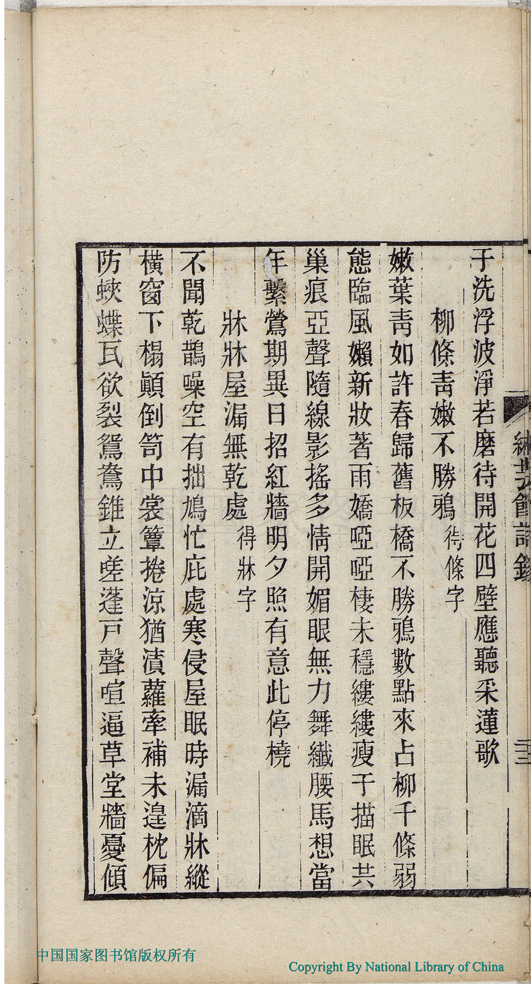 繡芸館詩錄
三
于洗浮波淨若磨待開花四壁應聽采蓮歌
柳條靑嫩不勝鴉 得條字
嫩葉靑如許春歸舊板橋不勝鴉數點來占柳千條弱
態臨風嬾新妝著雨嬌啞啞棲未穩縷縷瘦于描眠共
巢痕亞聲隨線影搖多情開媚眼無力舞纖腰馬想當
年繫鶯期異日招紅牆明夕照有意此停橈
牀牀屋漏無乾處 得牀字
不聞乾鵲噪空有拙鳩忙庇處寒侵屋眠時漏滴牀縱
橫窗下榻顚倒笥中裳簟捲涼猶漬蘿牽補未遑枕偏
防蛺蝶瓦欲裂鴛鴦錐立嗟蓬戸聲喧逼草堂牆憂傾
中国国家图书馆版权所有
Copyright By National Library of China